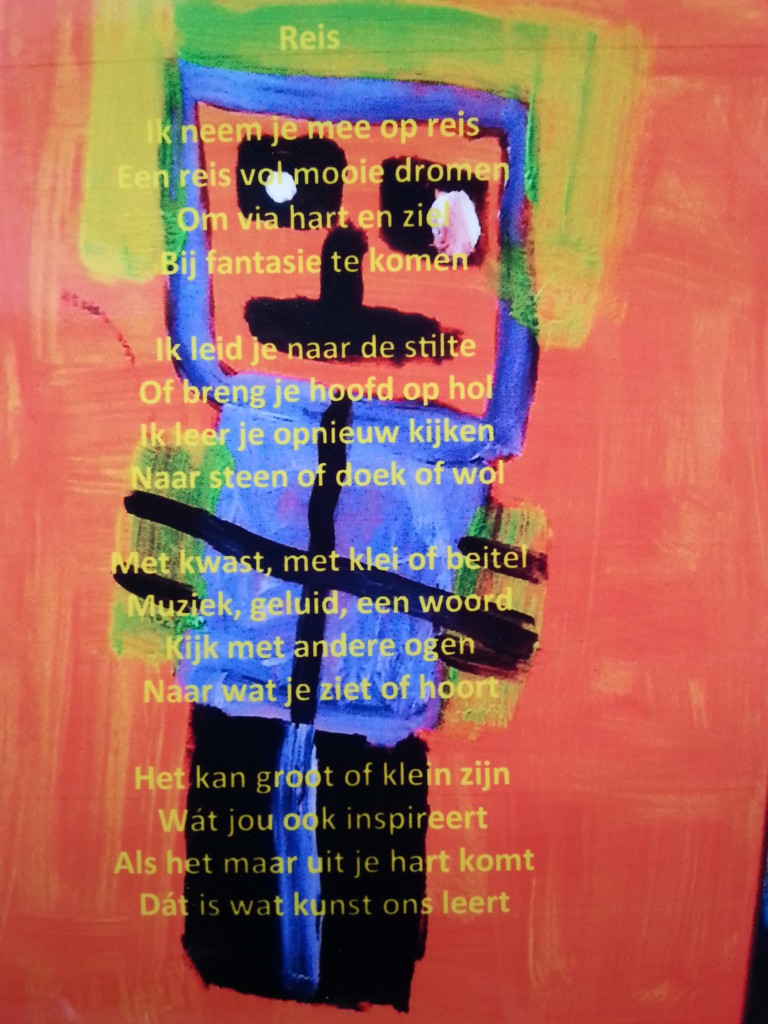 Reis
Ik neem je mee op reis
Een reis vol mooie dromen
Om via hart en ziel
Bij fantasie te komen
Ik leid je naar de stilte
Of breng je hoofd op hol
Ik leer je opnieuw kijken
Naar steen of doek of wol
Met kwast, met klei of beitel
Muziek, geluid, een woord
Kijk met andere ogen
Naar wat je ziet of hoort
Het kan groot of klein zijn
Wát jou ook inspireert
Als het maar uit je hart komt
Dát is wat kunst ons leert